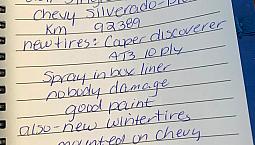 Chevy Silverado-
Km 92389
new tires: Caper discoverer
AT3 10 ply
Spray in box liner
nobody damage
good paint
also-new wintertires
mounted on chevy